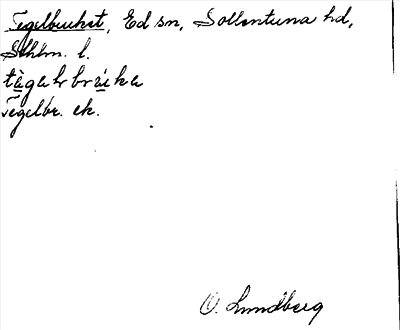 Tegelbruket, Ed sn, Sollentuna hd,
Sthlm. l.
tägahrbrúka
Tegelbr. ek.
O. Lundberg